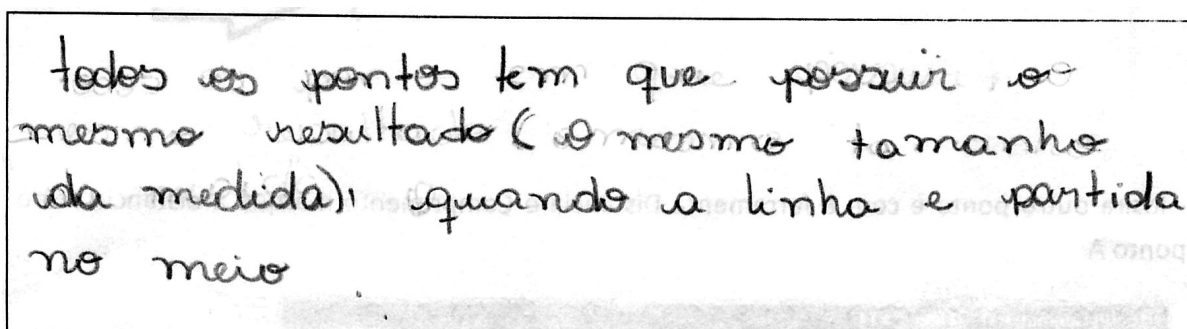 todos os pontos tem que possuir o
mesmo resultado (o mesmo tamanho
da medida), quando a linha e partida
no meio